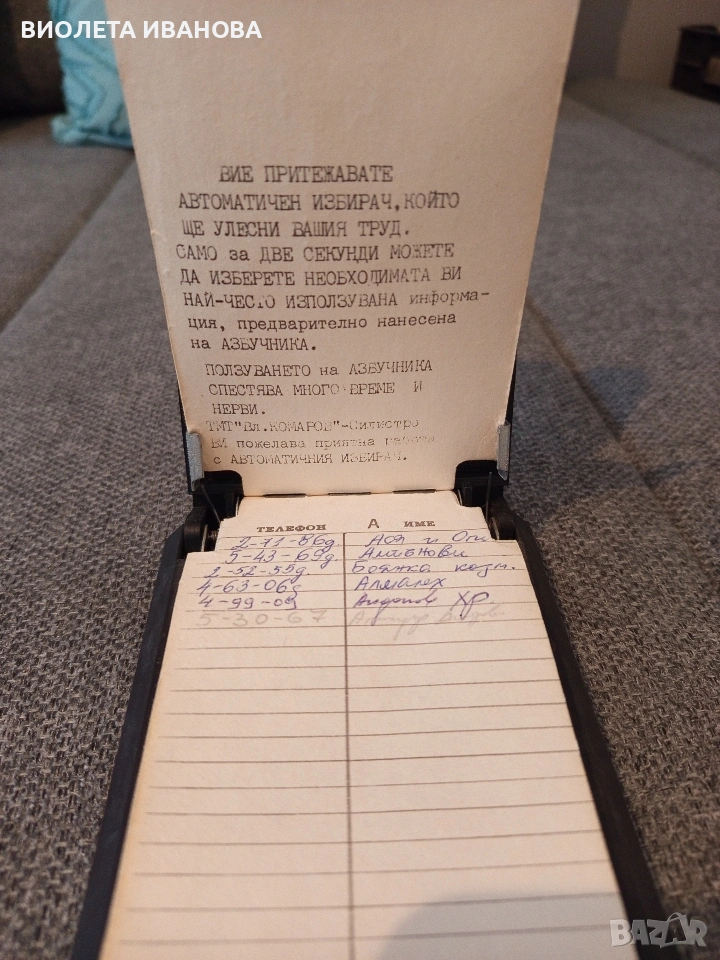 ВИОЛЕТА ИВАНОВА
ВИЕ ПРИТЕЖАВАТЕ
АВТОМАТИЧЕН ИЗБИРАЧ,КОЙТО
ЩЕ УЛЕСНИ ВАШИЯ ТРУД.
САМО за ДВЕ СЕКУНДИ МОЖЕТЕ
ДА ИЗБЕРЕТЕ НЕОБХОДИМАТА ВИ
НАЙ-ЧЕСТО ИЗПОЛЗУВАНА информа-
ция, предварително нанесена
на АЗБУЧНИКА.
ПОЛЗУВАНЕТО на АЗБУЧНИКА
СПЕСТЯВА МНОГО ВРЕМЕ И
НЕРВИ.
ТМТ"Вл.КОМАРОВ"-Силистра
ВИ пожелава приятна работа
с АВТОМАТИЧНИЯ ИЗБИРАЧ.
ТЕЛЕФОН А ИМЕ
2-71-86д. Ася и
5-43-69д.
2-52-55д. Бояжа козм.
4-63-06д Алмалех
4-99-09 Андонов ХР.
5-30-67
BAZAR